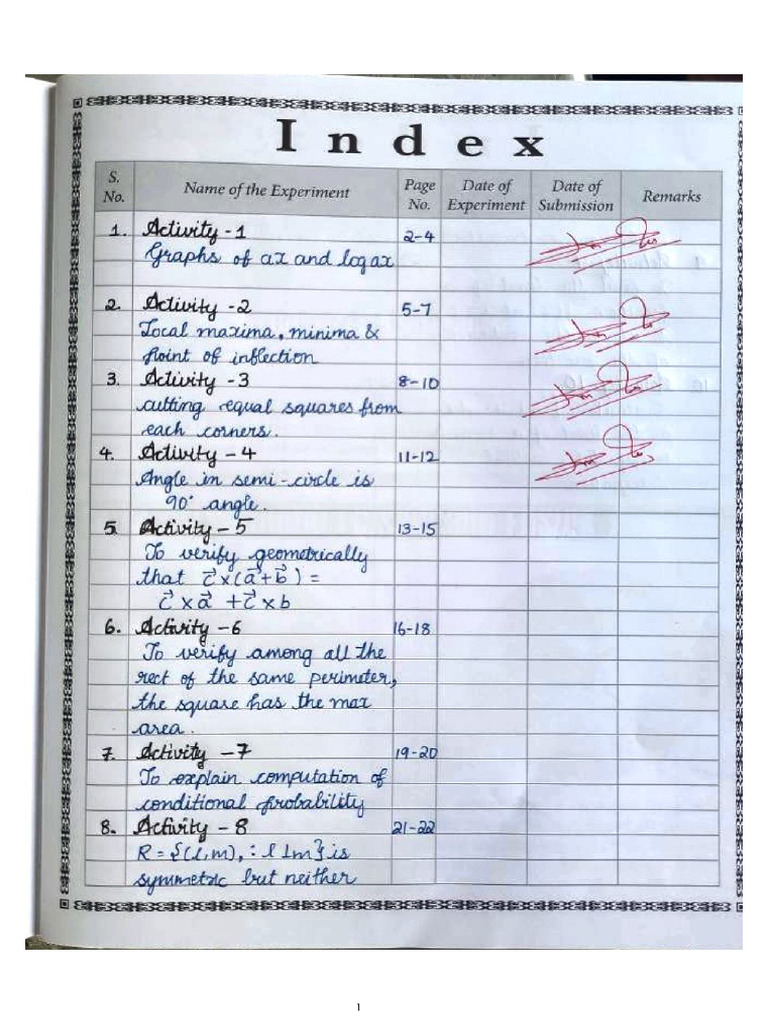 Index
S. No. Name of the Experiment Page No. Date of Experiment Date of Submission Remarks
1. Activity - 1 2-4
Graphs of ax and log ax
2. Activity - 2 5-7
Local maxima, minima &
Point of inflection
3. Activity - 3 8-10
cutting equal squares from
each corners.
4. Activity - 4 11-12
Angle in semi-circle is
90° angle.
5. Activity - 5 13-15
To verify geometrically
that c⃗×(a⃗+b⃗) =
c⃗×a⃗ + c⃗×b
6. Activity - 6 16-18
To verify among all the
rect of the same perimeter,
the square has the max
area.
7. Activity - 7 19-20
To explain computation of
conditional probability
8. Activity - 8 21-22
R = {(l,m), : l ⊥ m} is
symmetric but neither
1